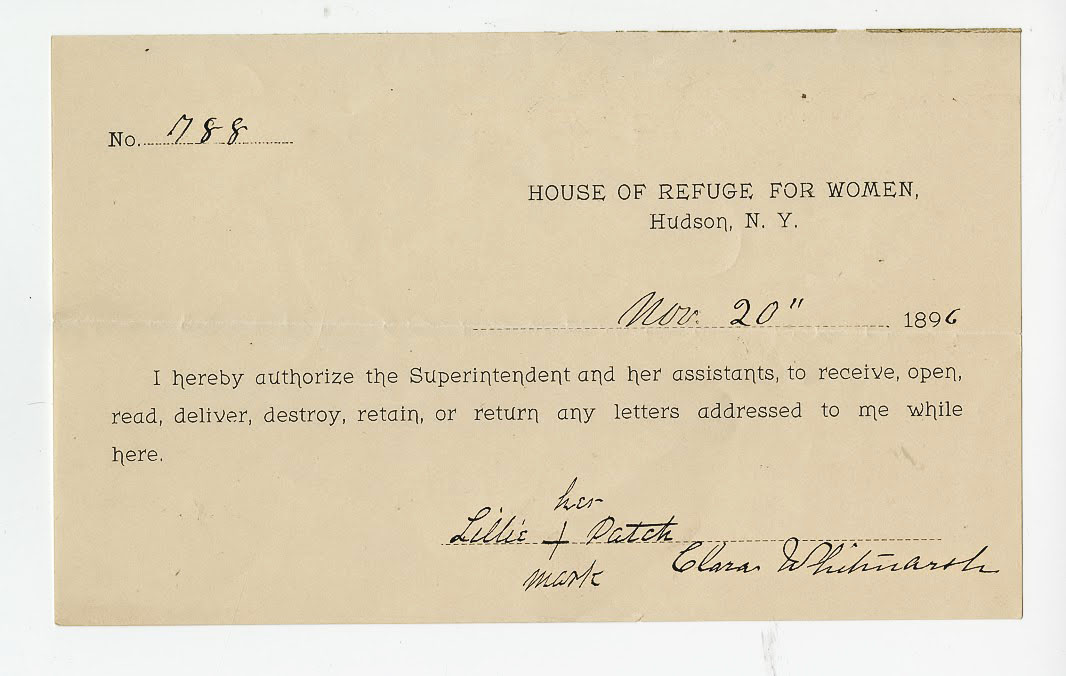 No. 788
HOUSE OF REFUGE FOR WOMEN,
Hudson, N. Y.
Nov. 20" 1896
I hereby authorize the Superintendent and her assistants, to receive, open,
read, deliver, destroy, retain, or return any letters addressed to me while
here.
her
Lillie + Patch
mark
Clara Whitmarsh